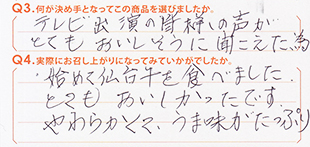 Q3.何が決め手となってこの商品を選びましたか。
テレビ出演の皆様の声が
とてもおいしそうに聞こえた為
Q4.実際にお召し上がりになってみていかがでしたか。
始めて仙台牛を食べました
とても おいしかったです。
やわらかくて、うま味がたっぷり